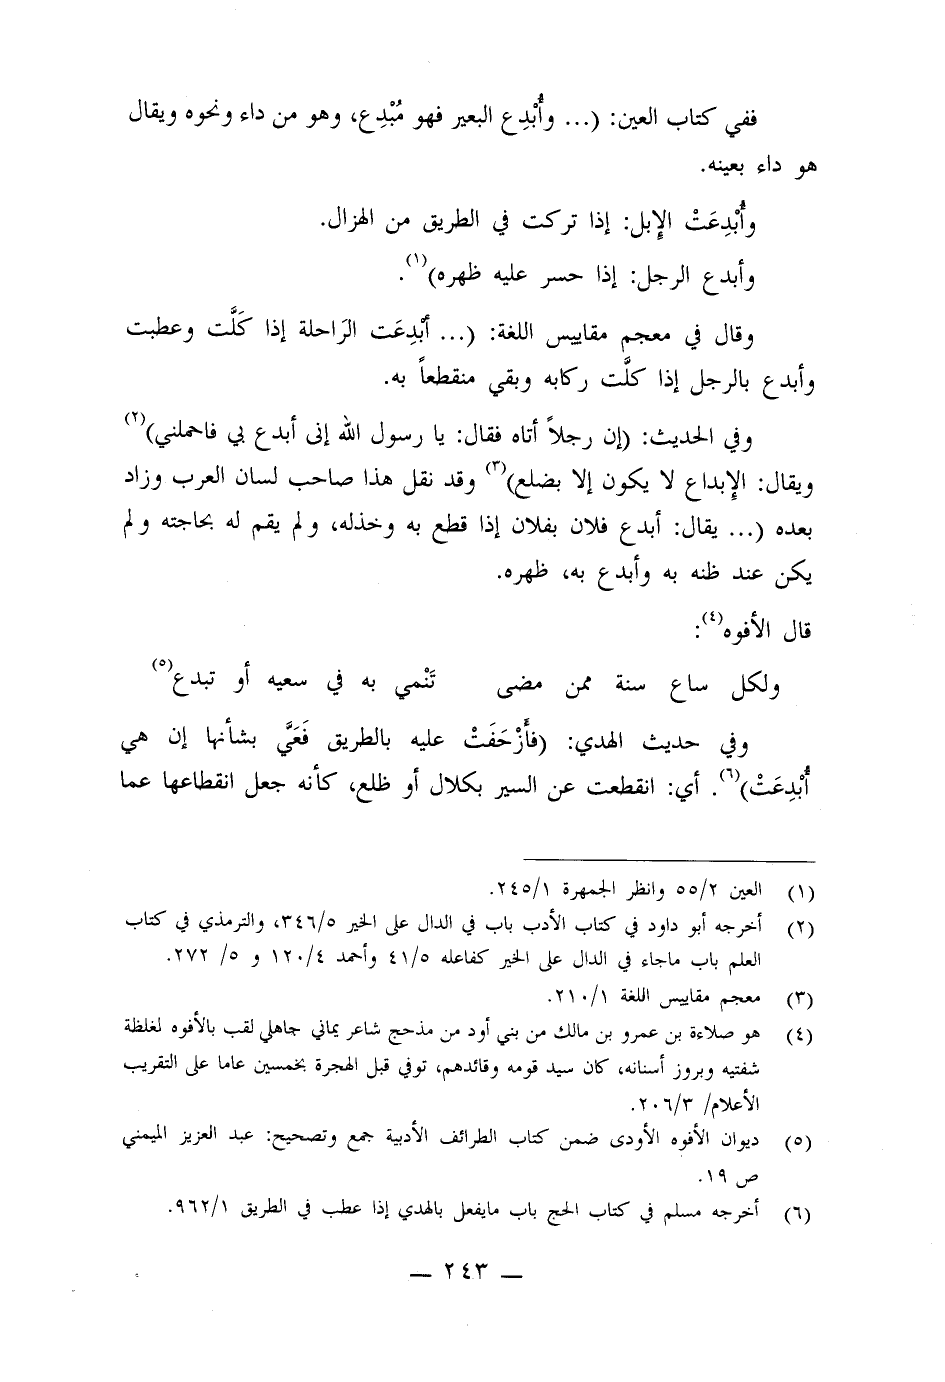 ففي كتاب العين: (... وأُبْدِع البعير فهو مُبْدِع، وهو من داء ونحوه ويقال
هو داء بعينه.
وأُبْدِعَتْ الإِبل: إذا تركت في الطريق من الهزال.
وأبدع الرجل: إذا حسر عليه ظهره)(١).
وقال في معجم مقاييس اللغة: (... أبْدِعَت الرَاحلة إذا كَلَّت وعطبت
وأبدع بالرجل إذا كلَّت ركابه وبقي منقطعاً به.
وفي الحديث: (إن رجلاً أتاه فقال: يا رسول الله إنى أبدع بي فاحملني)(٢)
ويقال: الإِبداع لا يكون إلا بضلع)(٣) وقد نقل هذا صاحب لسان العرب وزاد
بعده (... يقال: أبدع فلان بفلان إذا قطع به وخذله، ولم يقم له بحاجته ولم
يكن عند ظنه به وأبدع به، ظهره.
قال الأفوه(٤):
ولكل ساع سنة ممن مضى تَنْمي به في سعيه أو تبدع(٥)
وفي حديث الهدي: (فأَزْحَفَتْ عليه بالطريق فَعَيَّ بشأنها إن هي
أُبْدِعَتْ)(٦). أي: انقطعت عن السير بكلال أو ظلع، كأنه جعل انقطاعها عما
(١) العين ٥٥/٢ وانظر الجمهرة ٢٤٥/١.
(٢) أخرجه أبو داود في كتاب الأدب باب في الدال على الخير ٣٤٦/٥، والترمذي في كتاب
العلم باب ماجاء في الدال على الخير كفاعله ٤١/٥ وأحمد ١٢٠/٤ و ٥/ ٢٧٢.
(٣) معجم مقاييس اللغة ٢١٠/١.
(٤) هو صلاءة بن عمرو بن مالك من بني أود من مذحج شاعر يماني جاهلي لقب بالأفوه لغلظة
شفتيه وبروز أسنانه، كان سيد قومه وقائدهم، توفي قبل الهجرة بخمسين عاما على التقريب
الأعلام/ ٢٠٦/٣.
(٥) ديوان الأفوه الأودى ضمن كتاب الطرائف الأدبية جمع وتصحيح: عبد العزيز الميمني
ص ١٩.
(٦) أخرجه مسلم في كتاب الحج باب مايفعل بالهدي إذا عطب في الطريق ٩٦٢/١.
— ٢٤٣ —